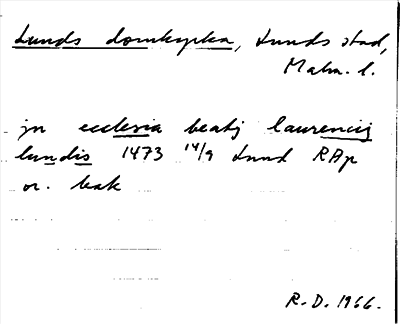 Lunds domkyrka, Lunds stad,
Malm. l.
jn ecclesia beatj laurencij
lundis 1473 14/9 Lund RAp
or. bak
R.D. 1966.